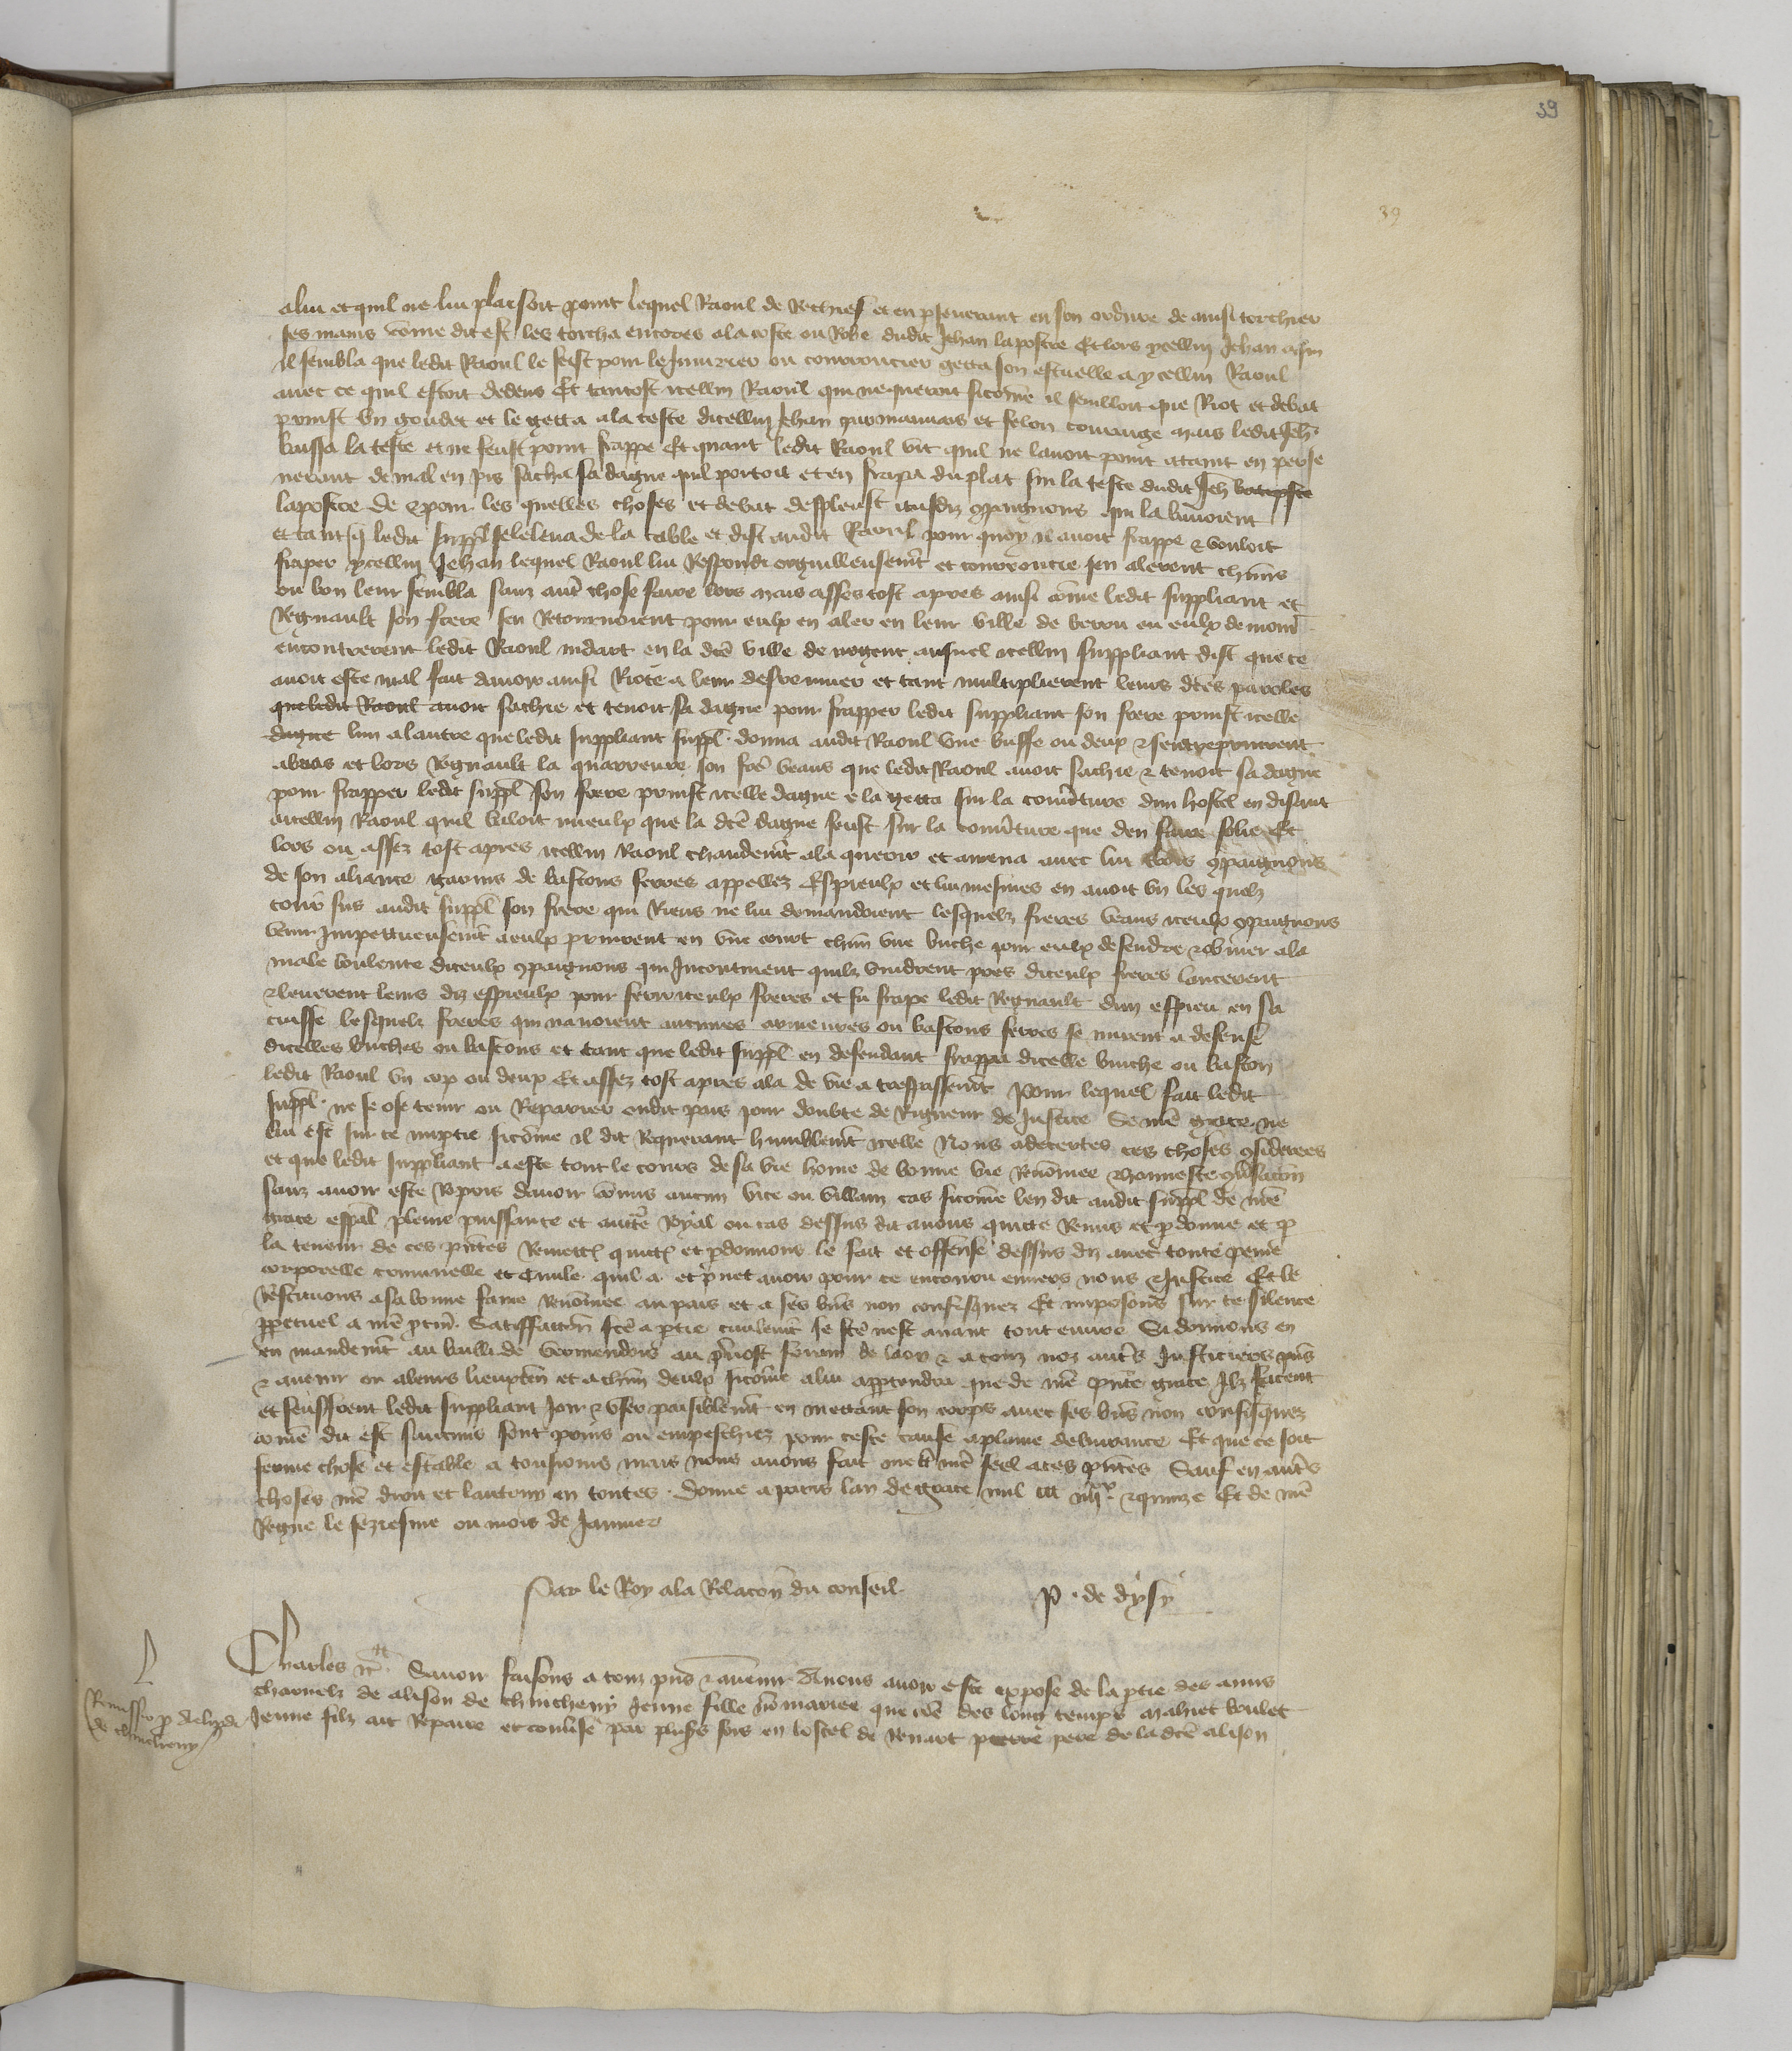 39
39
a lui et quil ne lui plaisoit point lequel Raoul de Rechief et en pseverant en son ordure de ainsi torchier
ses mains come dit est les torcha encores a la coste ou Robe dudit Jehan lapostre Et lors ycellui Jehan
il sembla que ledit Raoul le feist pour le Iniurier ou courroucier getta son escuelle a ycellui Raoul
avec ce quil estoit dedens Et tantost icellui Raoul qui ne queroit sicome il sembloit que Riot et debat
prinst un godet et le getta a la teste dicellui Jehan par mauvais et felon courage mais ledit Jeh
baissa la teste et ne feust point frappe Et quant ledit Raoul vit quil ne lavoit point ataint en perse
verant de mal en pis sacha sa dague quil portoit et en frapa du plat sur la teste dudit Jeh
lapostre de & pour les quelles choses et debat despleust ausdiz 9paignons qui la buvoient
et tant q ledit suppl se leleva de la table et dist audit Raoul pour quoy il avoit frappe & vouloit
fraper ycellui Jehan lequel Raoul lui Respondi orguilleusemt et courroucie sen alerent chun
ou bon leur sembla sanz aut chose faire lors mais asses tost apres ainsi come ledit suppliant et
Regnault son frere sen Retournoient pour eulx en aler en leur ville de berru ou eulx demour
encontrerent ledit Raoul mdart en la dce ville de nogent auquel icellui suppliant dist que ce
avoit este mal fait davoir ainsi Riote a leur desreuner et tant multiplierent leurs dces paroles
que ledit Raoul avoit sachie et tenoit sa dague pour frapper ledit suppliant son frere prinst icelle
dague lun a lautre que ledit suppliant suppl donna audit Raoul une buffe ou deux & sentreprinrent
a bras et lors Regnault la quarreure son fre veans que ledit Raoul avoit sachie & tenoit sa dague
pour frapper ledit suppl son frere prinst icelle dague & la getta sur la couverture dun hostel en disant
a icellui Raoul quil valoit mieulx que la dce dague feust sur la couverture que den faire folie Et
lors ou assez tost apres icellui Raoul chaudemt ala querir et amena avec lui trois 9paignons
de son aliance garnis de bastons ferres appellez Espieulx et lui mesmes en avoit un les quelz
courir sus audit suppl son frere qui Riens ne lui demandoient lesquelz freres veans iceulx 9paignons
venir Impettueusemt a eulx prinrent en une court chun une buche pour eulx defendre & obvier a la
male voulente diceulx 9paignons qui Incontinent quilz vindrent pres diceulx freres lancerent
& leverent leurs diz espieulx pour ferir iceulx freres et fu frape ledit Regnault dun espieu en sa
cuisse lesquelz freres qui navoient aucunes armeures ou bastons ferres se mirent a defense
dicelles buches ou bastons et tant que ledit suppl en defendant frappa dicelle buche ou baston
ledit Raoul un cop ou deux Et assez tost apres ala de vie a trespassemt Pour lequel fait ledit
suppl ne se ose tenir ou Reparier oudit pais pour doubte de Rigueur de Justice Se nre grace ne
lui est sur ce imptie sicome il dit Requerant humblemt icelle Nous adecertes ces choses 9siderees
et que ledit suppliant a este tout le cours de sa vie home de bonne vie Renomee & honneste 9versacon
sanz avoir este Repris davoir comis aucun vice ou villain cas sicome len dit audit suppl de nre
grace espal pleine puissance et aucte Royal ou cas dessus dit avons quicte Remis et pdonne et p
la teneur de ces pntes Remett quitt et pdonnons le fait et offense dessus diz avec toute peine
corporelle criminelle et Civile quil a et puet avoir pour ce encouru envers nous & Justice Et le
Restituons a sa bonne fame Renomee au pais et a ses bns non confisquez Et imposons sur ce silence
ppetuel a nre pcur Satisffaccon fce a ptie civilemt se fce nest avant tout euvre Si donnons en
en mandemt au bailli de Vermendois au pvost forain de laon & a touz noz autres Justiciers pns
& avenir ou a leurs lieuxten et a chun deulx sicome a lui apptendra que de nre pnte grace Ilz facent
et seuffrent ledit suppliant Joir & User paisiblemt en mettant son corps avec ses bns non confisquez
come dit est saucuns sont prins ou empeschiez pour ceste cause a plaine delivrance Et que ce soit
ferme chose et estable a tousiours mais nous avons fait mettre nre seel a ces pntes Sauf en autres
choses nre droit et lautruy en toutes Donne a paris lan de grace mil ccc iiiixx & quinze Et de nre
Regne le seziesme ou mois de Janvier
Par le Roy a la Relacon du conseil P. de dysy
Charles &c Savoir faisons a touz pns & avenir A nous avoir este expose de la ptie des amis
charnelz de alison de chincheny Jeune fille no mariee que come des long temps mahiet boulet
Jeune filz ait Repaire et converse par plusrs fois en lostel de Renart pierre pere de la dce alison
Remissio p Aelipde
de chincheny